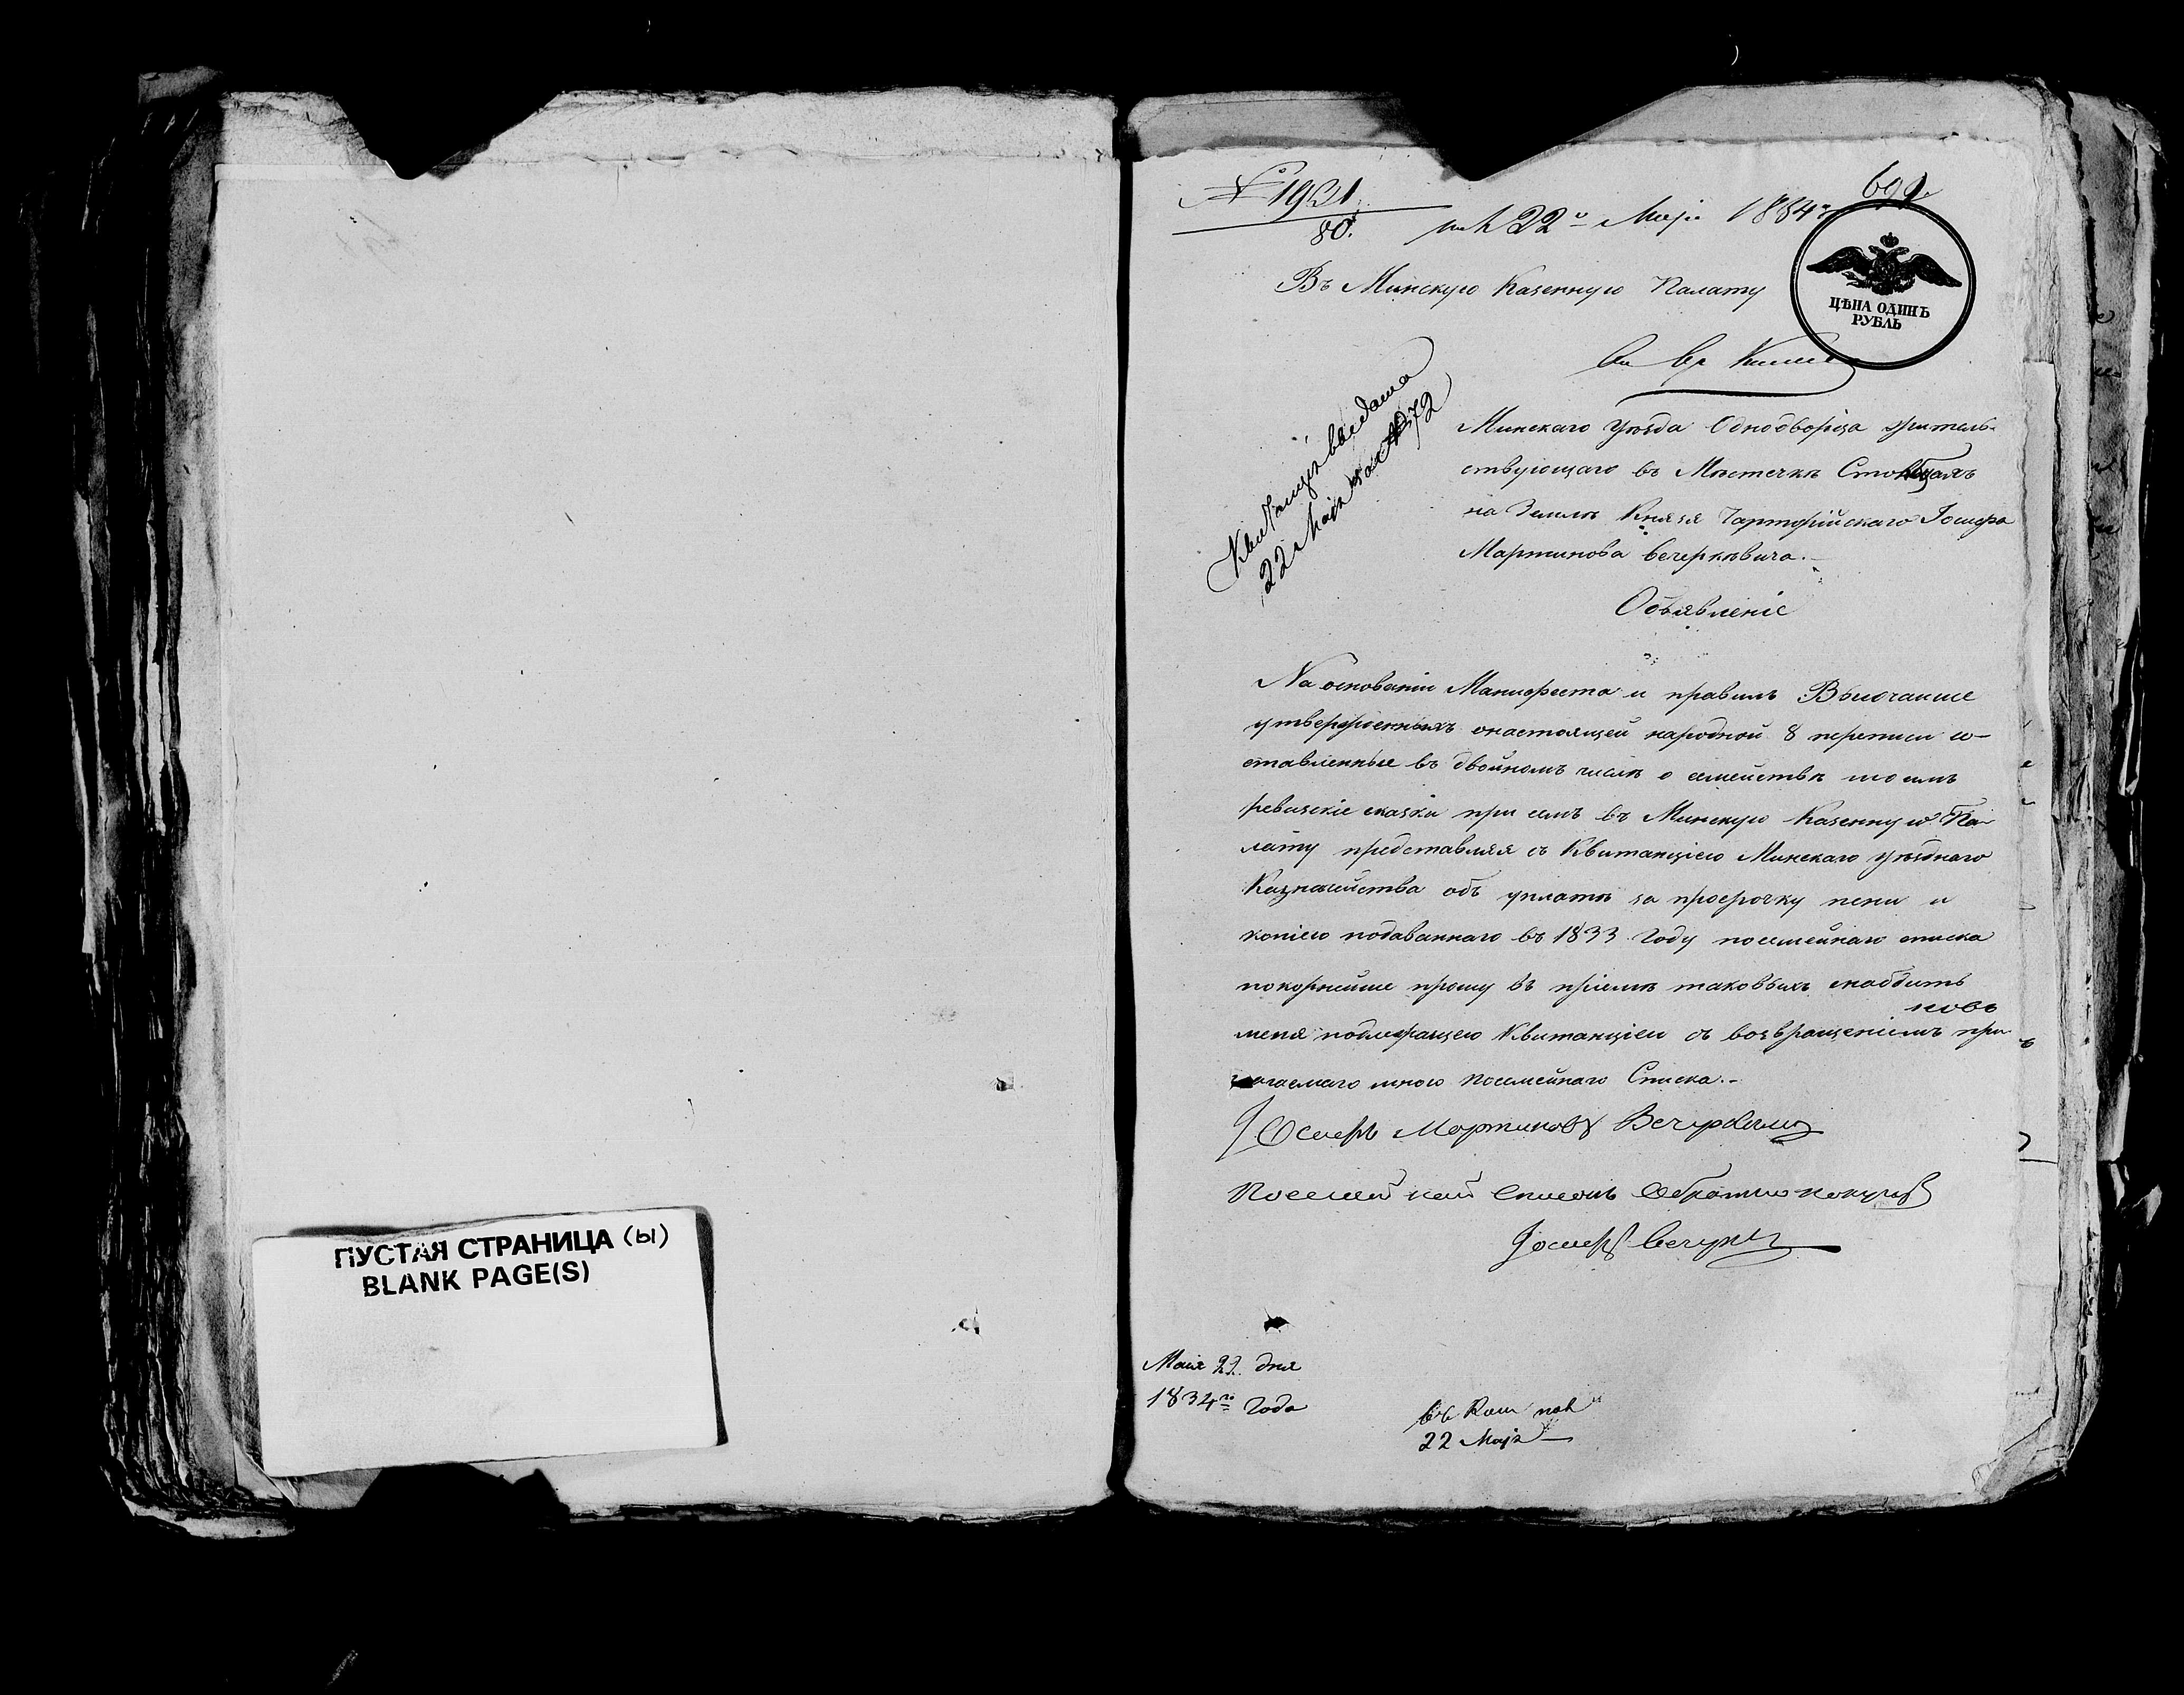 ПУСТАЯ СТРАНИЦА (ы)
BLANK PAGE(S)
№ 1931
80.
22 1834
699.
ЦѢНА ОДИНЪ
РУБЛЬ
Въ Минскую Казенную Палату
Квитанція выдана
22 Маія за № 72
Минскаго уѣзда Однодворца житель-
ствующаго въ Мѣстечкѣ
на Землѣ Князя Іосифа
Мартинова Вечеркевича.-
Объявленіе
На основаніи Манифеста и правилъ Высочайше
утвержденныхъ онастоящей народной 8 переписи со-
ставленные въ двойномъ числѣ о семействѣ моемъ
ревизскіе сказки при семъ въ Минскую Казенную Па-
лату представляя съ Квитанціею Минскаго уѣзднаго
Казначейства объ уплатѣ за просрочку пени и
копіею подаваннаго въ 1833 году посемейнаго списка
покорнейше прошу въ пріемѣ таковыхъ снабдить
меня подлежащею Квитанціею съ возвращеніемъ при-
лагаемаго мною посемейнаго Списка.-
Іосифъ Мартиновъ
Посемейный списокъ обратно получилъ
Іосифъ
Маія 22 дня
1834го года
22 Маія